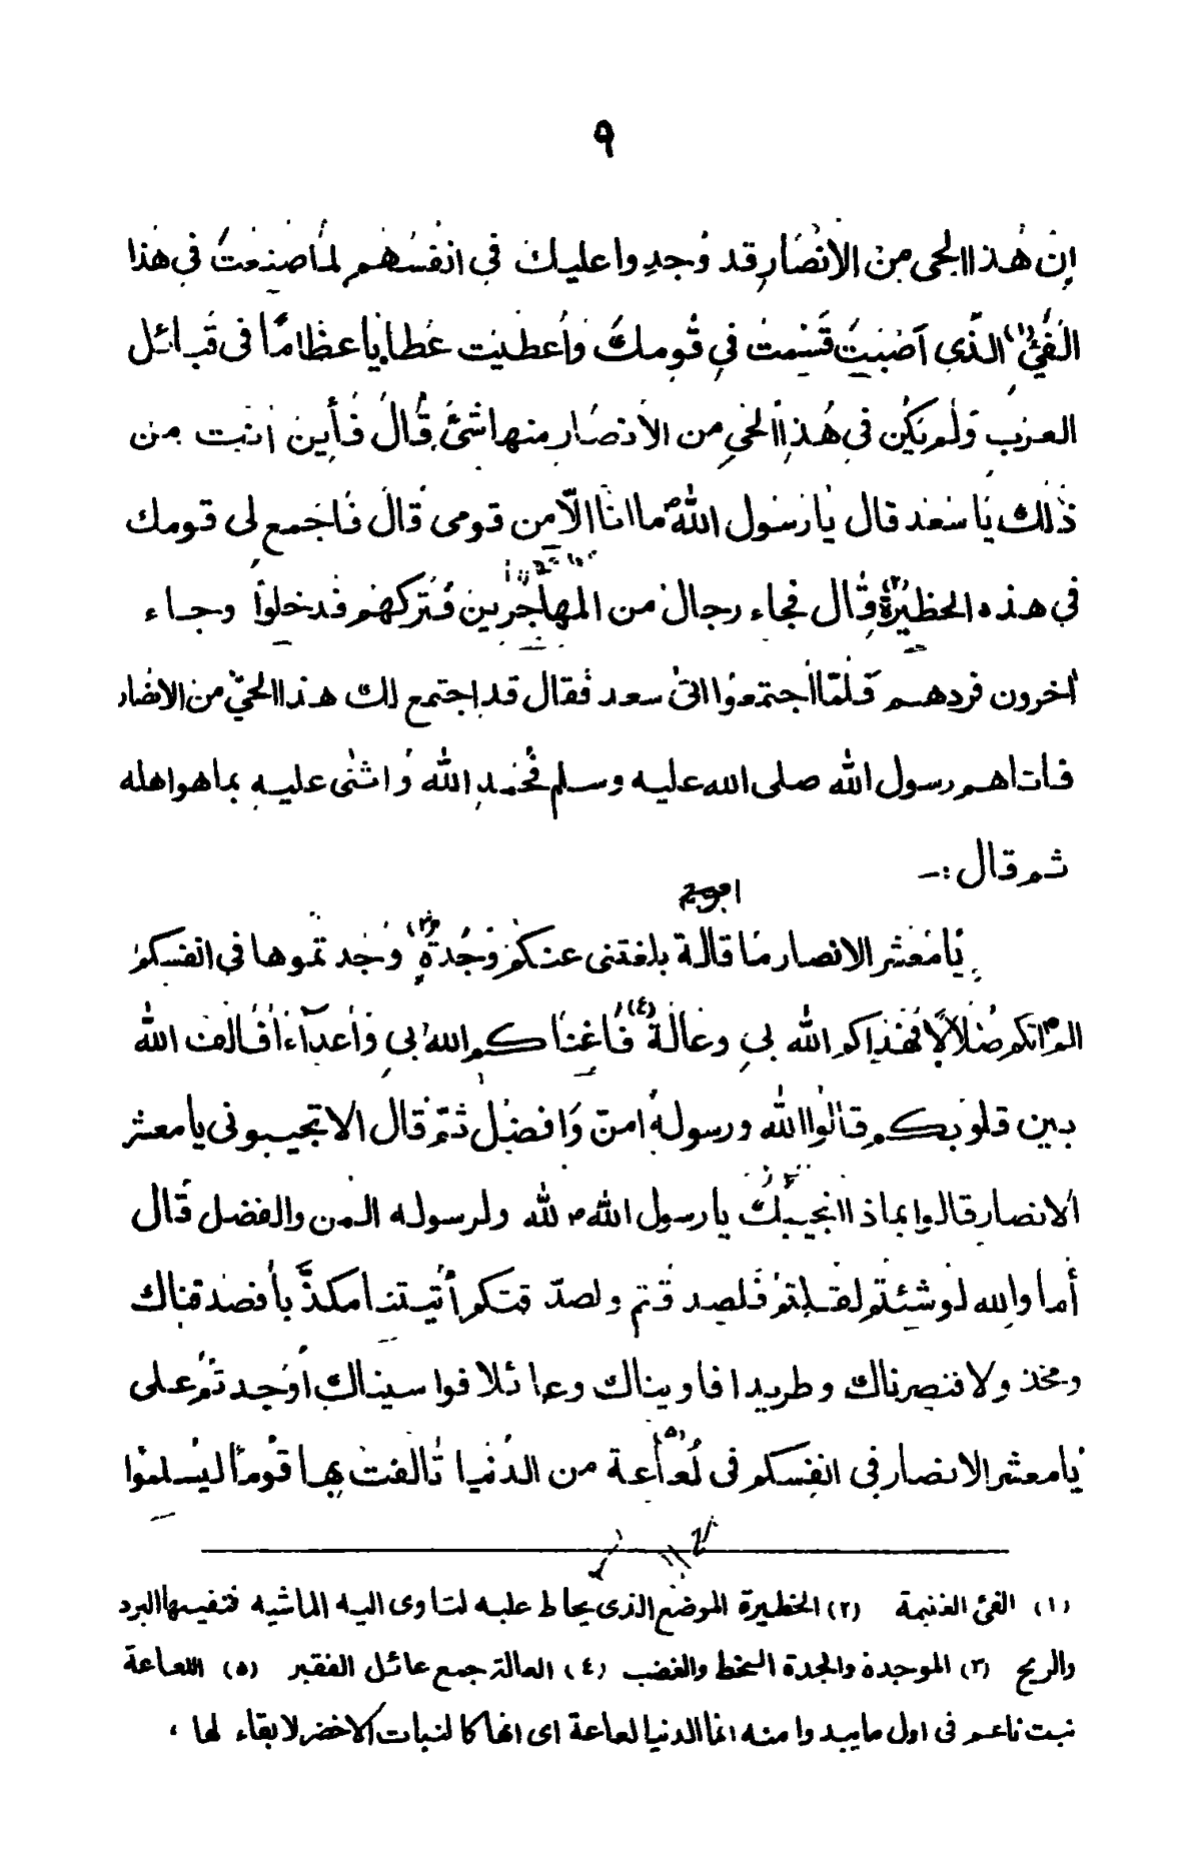 ٩
إن هذا الحى من الانصار قد وجدوا عليك في انفسهم لما صنعت في هذا
الفئ (١) الذى أصبت قسمت في قومك وأعطيت عطايا عظاما فى قبائل
العرب ولم يكن في هذا الحي من الأنصار منها شئ قال فأين انت من
ذلك يا سعد قال يا رسول الله ما انا الّا من قومى قال فاجمع لى قومك
في هذه الحظيرة (٢) قال فجاء رجال من المهاجرين فتركهم فدخلوا وجاء
اخرون فردهم فلمّا اجتمعوا اتى سعد فقال قد اجتمع لك هذا الحيّ من الانصار
فاتاهم رسول الله صلى الله عليه وسلم فحمد الله واثنى عليه بما هو اهله
ثم قال :-
يا معشر الانصار ما قالة بلغتنى عنكم وجدة (٣) وجد تموها في انفسكم
الم اتكم ضلالا فهداكم الله بي وعالة (٤) فاغناكم الله بي وأعدآء فألف الله
بين قلوبكم قالوا الله ورسوله امنّ وافضل ثمّ قال الا تجيبونى يا معشر
الانصار قالوا بماذا نجيبك يا رسول الله لله ولرسوله المن والفضل قال
أما والله لو شئتم لقلتم فلصد قتم ولصدّ قتكم أتيتنا مكذّبا فصدقناك
ومخذولا فنصرناك وطريدا فاويناك وعائلا فواسيناك أوجدتم على
يا معشر الانصار في انفسكم فى لعاعة (٥) من الدنيا تألفت بها قوما ليسلموا
(١) الفئ الغنيمة (٢) الحظيرة الموضع الذى يحاط عليه لتاوى اليه الماشيه فتقيها البرد
والريح (٣) الموجدة والجدة السخط والغضب (٤) العالة جمع عائل الفقير (٥) اللعاعة
نبت ناعم فى اول ما يبدوا منه انما الدنيا لعاعة اى انها كالنبات الاخضر لا بقاء لها ،